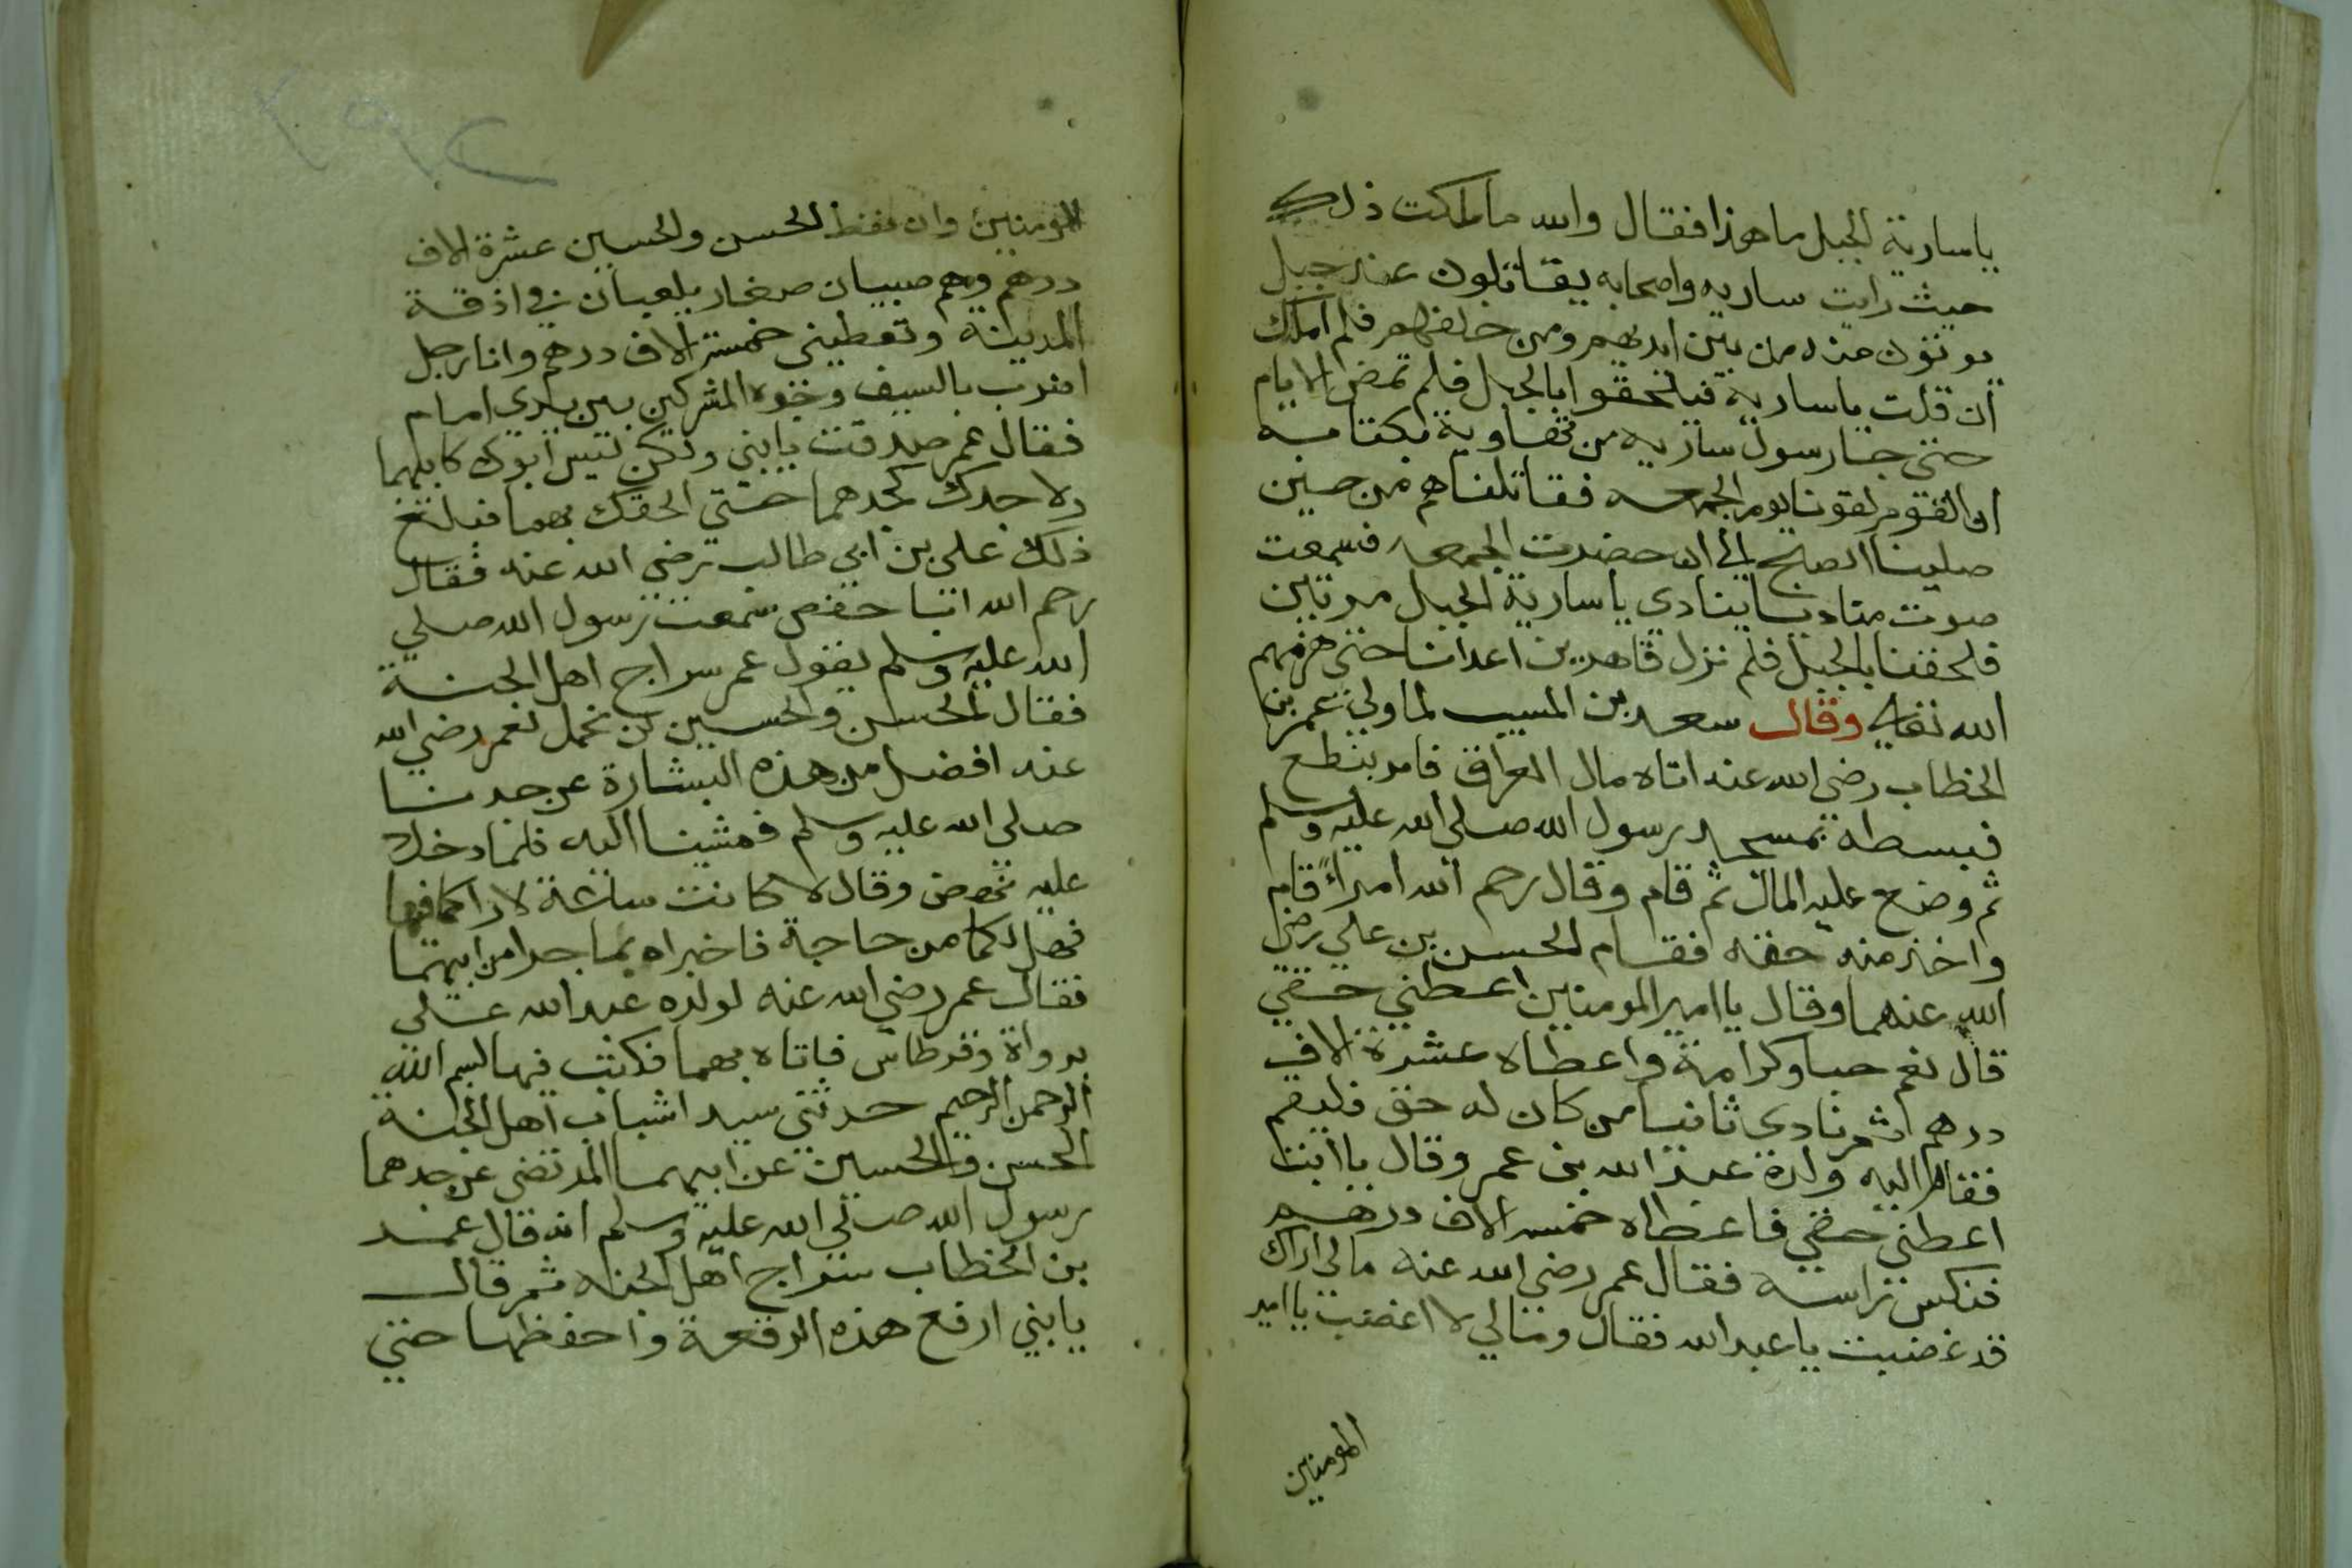 يا سارية الجبل ما هو ذا فقال والله ما ملكت ذلك
حيث رايت ساريه واصحابه يقاتلون عند جبل
يوتون منه من بين ايديهم ومن خلفهم فلم املك
ان قلت يا ساريه فيلحقوا بالجبل فلم تمض الايام
حتى جا رسول ساريه من نهاوية بكتابه
ان القوم لقونا يوم الجمعه فقاتلناهم من حين
صلينا الصبح الى ان حضرت الجمعه فسمعت
صوت مناديا ينادى يا سارية الجبل مرتين
فلحقنا بالجبل فلم نزل قاهرين اعدانا حتى هزمهم
الله تعالى وقال سعد بن المسيب لما ولي عمر بن
الخطاب رضي الله عنه اتاه مال العراق فامر بنطع
فبسطه بمسجد رسول الله صلى الله عليه وسلم
ثم وضع عليه المال ثم قام وقال رحم الله امراءً قام
واخذ منه حقه فقام الحسن بن علي رضي
الله عنهما وقال يا امير المومنين اعطني حقي
قال نعم حبا وكرامة واعطاه عشرة الاف
درهم ثم نادى ثانيا من كان له حق فليقم
فقام اليه ولده عبد الله بن عمر وقال يا ابت
اعطني حقي فاعطاه خمسه الاف درهم
فنكس راسه فقال عمر رضي الله عنه مالى اراك
قد غضبت يا عبد الله فقال ومالي لا اغضب يا امير
المومنين
المومنين وان تعط الحسن والحسين عشرة الاف
درهم وهم صبيان صغار يلعبان في ازقة
المدينة وتعطيني خمسة الاف درهم وانا رجل
اضرب بالسيف وجوه المشركين بين يدي امام
فقال عمر صدقت يا بني ولكن ليس ابوك كابيهما
ولا جدك كجدهما حتي الحقك بهما فبلغ
ذلك علي بن ابي طالب رضي الله عنه فقال
رحم الله ابا حفص سمعت رسول الله صلي
الله عليه وسلم يقول عمر سراج اهل الجنة
فقال للحسن والحسين لن نحمل لعمر رضي الله
عنه افضل من هذه البشارة عن جدنا
صلى الله عليه وسلم فمشينا اليه فلما دخلا
عليه نهض وقال لا كانت ساعة لا اراكما فيها
فهل لكما من حاجة فاخبراه بما جرا من ابيهما
فقال عمر رضي الله عنه لولده عبد الله علي
بدواة وقرطاس فاتاه بهما فكتب فيها بسم الله
الرحمن الرحيم حدثني سيد اشباب اهل الجنة
الحسن والحسين عن ابيهما المرتضى عن جدهما
رسول الله صلي الله عليه وسلم انه قال عمر
بن الخطاب سراج اهل الجنه ثم قال
يا بني ارفع هذه الرقعة واحفظها حتي